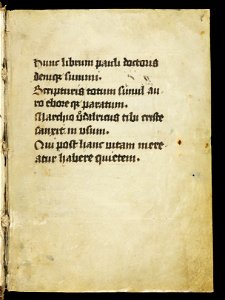 Hunc librum pauli doctoris
denique summi.
Scripturis totum simul au-
ro ebore que paratum.
Marchio Vdalricus tibi criste
sanxit in usum.
Qui post hanc vitam mere
atur habere quietem.